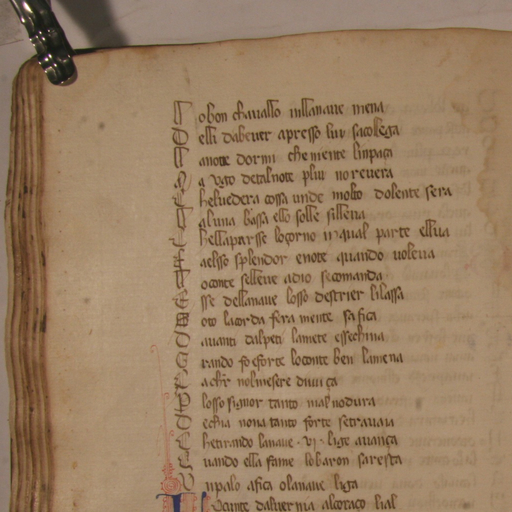 L obon chavallo inllanave mena
E lli dabever apresso liu sacollega
L anote dormi che niente linpaça
D a Ugo detal note plui no revera
C helvedera cossa unde molto dolente sera
A l una bassa ello solle silleva
C hellaparsse logorno in qual parte ellua
A elsso splendor enote quando voleva
L oconte selleve adio secomanda
E sse dellanave losso destrier lilassa
M oto lacorda fera mente safica
D avanti dalpeti lamete essechina
T irando fo eforte loconte ben lamena
M a chr nolmesere
L osso signor tanto mal nodura
E echia nova tanto forte setravaia
C hetirando lanave . VI . lige avança
Q uando ella fame lobaron saresta
U npalo afica olanave liga
L oconte dalvernia alcotaço lial